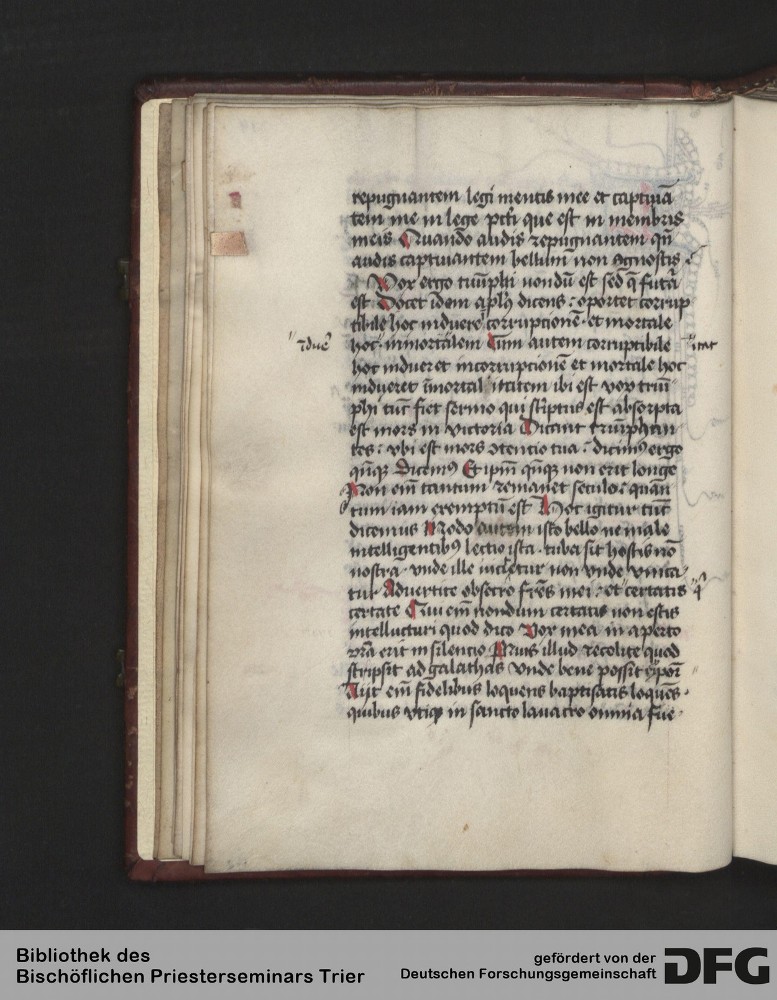 repugnantem legi mentis mee et captiuā
tem me in lege pcti que est in membris
meis Quando audis repugnantem qn̄
audis captiuantem bellum non agnoscis
Vox ergo tiūphi nondū est sed q̄ futā
est Docet idem aplꝰ dicens : oportet corrup
tibile hoc induere corrupcionē · et mortale
induē
hoc · inmortalem Cum autem corruptibile
hoc induer et incorrupcionē et mortale hoc
indueret īmortal itatem ibi est vox triū
phi tūc fiet sermo qui sc̄iptus est absorpta
est mors in victoria Dicant triūphan
tes : vbi est mors ɔtencio tua : dicimꝰ ergo
qn̄qꝫ Dicemꝰ Et ipm̄ qn̄qꝫ non erit longe
Non em̄ tantum remanet seculo : quan
tum iam exemptū est Hoc igitur tūc
dicemus Modo autem isto bello ne male
intelligentibꝰ lectio ista · tuba sit hostis nō
nostra · vnde ille incitetur non vnde vinca
tur Aduertite obsecro fr̄es mei : et certatis
certate Qui em̄ nondum certatis non estis
intellecturi quod dico Vox mea in aperto
vr̄a erit in silencio Prius illud recolite quod
scripsit ad galathas Vnde bene possit expoī
Ait em̄ fidelibus loquens baptisatis loquēs ·
quibus vtiqꝫ in sancto lauacro omnia fue
Bibliothek des
Bischöflichen Priesterseminars Trier
gefördert von der
Deutschen Forschungsgemeinschaft
DFG